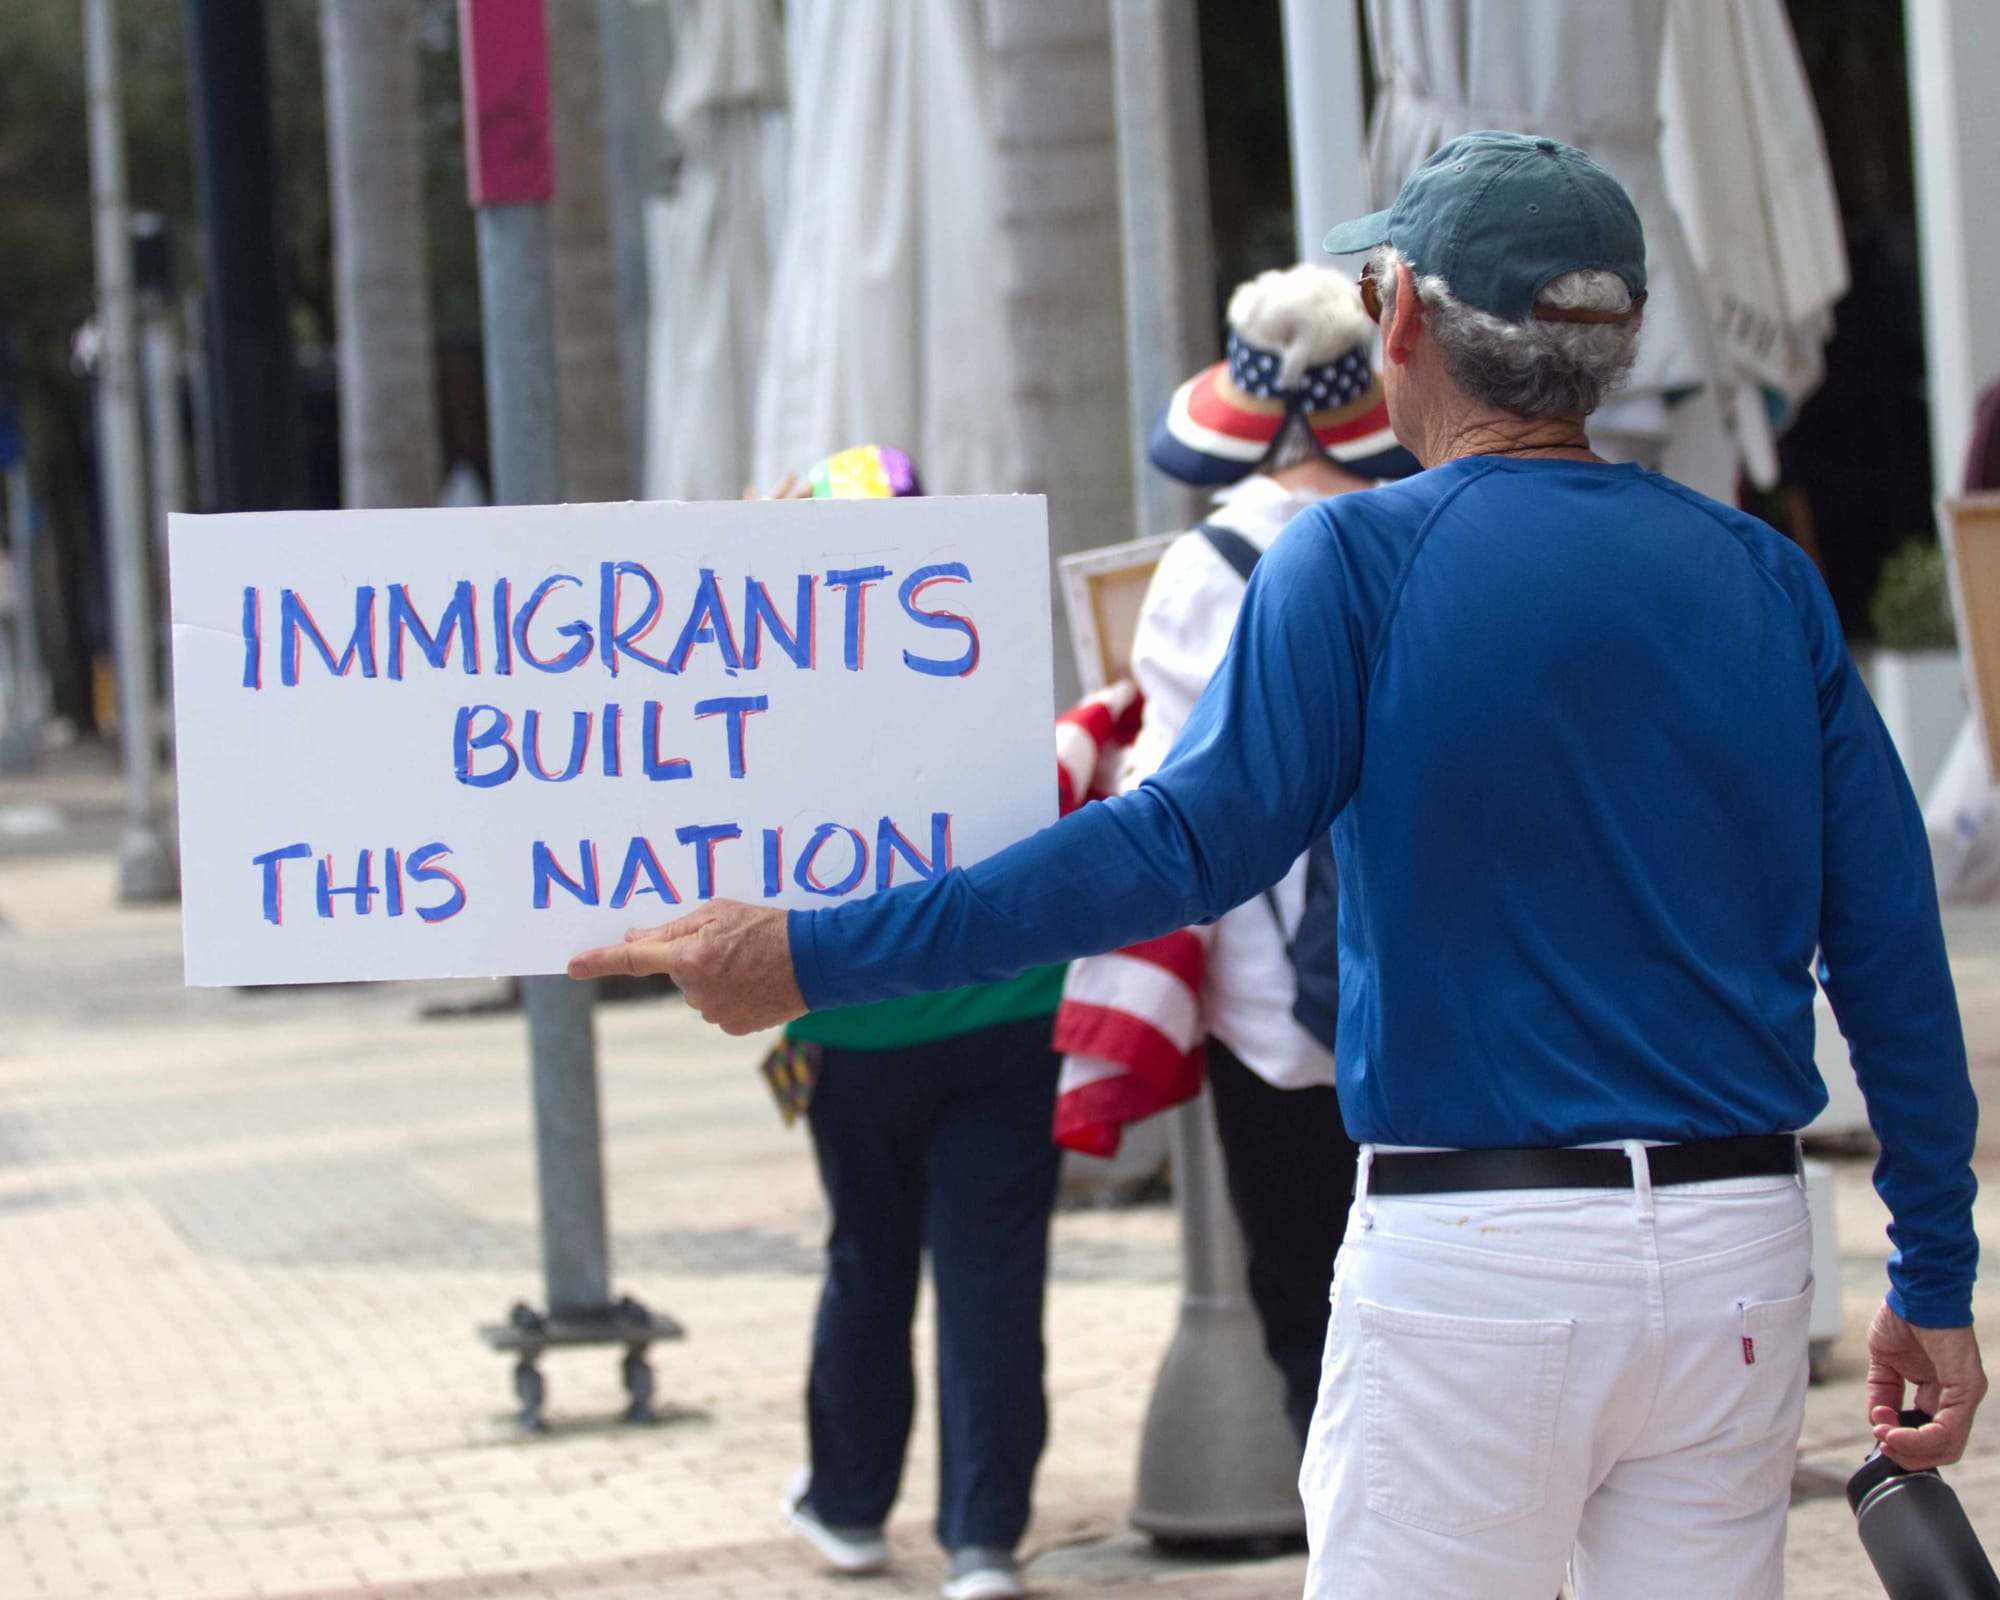 IMMIGRANTS
BUILT
THIS NATION